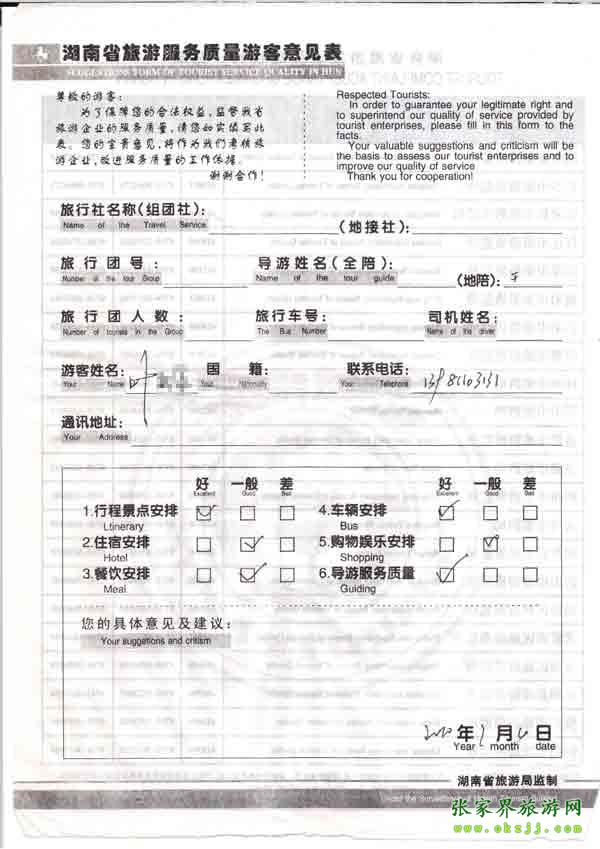 湖南省旅游服务质量游客意见表
SUGGESTIONS FORM OF TOURIST SERVICE QUALITY IN HUN
尊敬的游客：
为了保障您的合法权益，监督我省
旅游企业的服务质量，请您如实填写此
表。您的宝贵意见，将作为我们考核旅
游企业，改进服务质量的工作依据。
谢谢合作！
Respected Tourists:
In order to guarantee your legitimate right and
to superintend our quality of service provided by
tourist enterprises, please fill in this form to the
facts.
Your valuable suggestions and criticism will be
the basis to assess our tourist enterprises and to
improve our quality of service
Thank you for cooperation!
旅行社名称(组团社)： (地接社)：
Name of the Travel Service
旅行团号： 导游姓名(全陪)： (地陪)：
Number of the tour Group Name of the tour guide
旅行团人数： 旅行车号： 司机姓名：
Number of tourists in the Group The Bus Number Name of the driver
游客姓名： 国籍： 联系电话：
Your Name Your Nationality Your Telephone
通讯地址：
Your Address
好 一般 差 好 一般 差
Excellent Good Bad Excellent Good Bad
1.行程景点安排 4.车辆安排
Ltinerary Bus
2.住宿安排 5.购物娱乐安排
Hotel Shopping
3.餐饮安排 6.导游服务质量
Meal Guiding
您的具体意见及建议：
Your suggetions and critism
年 月 日
Year month date
湖南省旅游局监制
张家界旅游网
www.okzjj.com